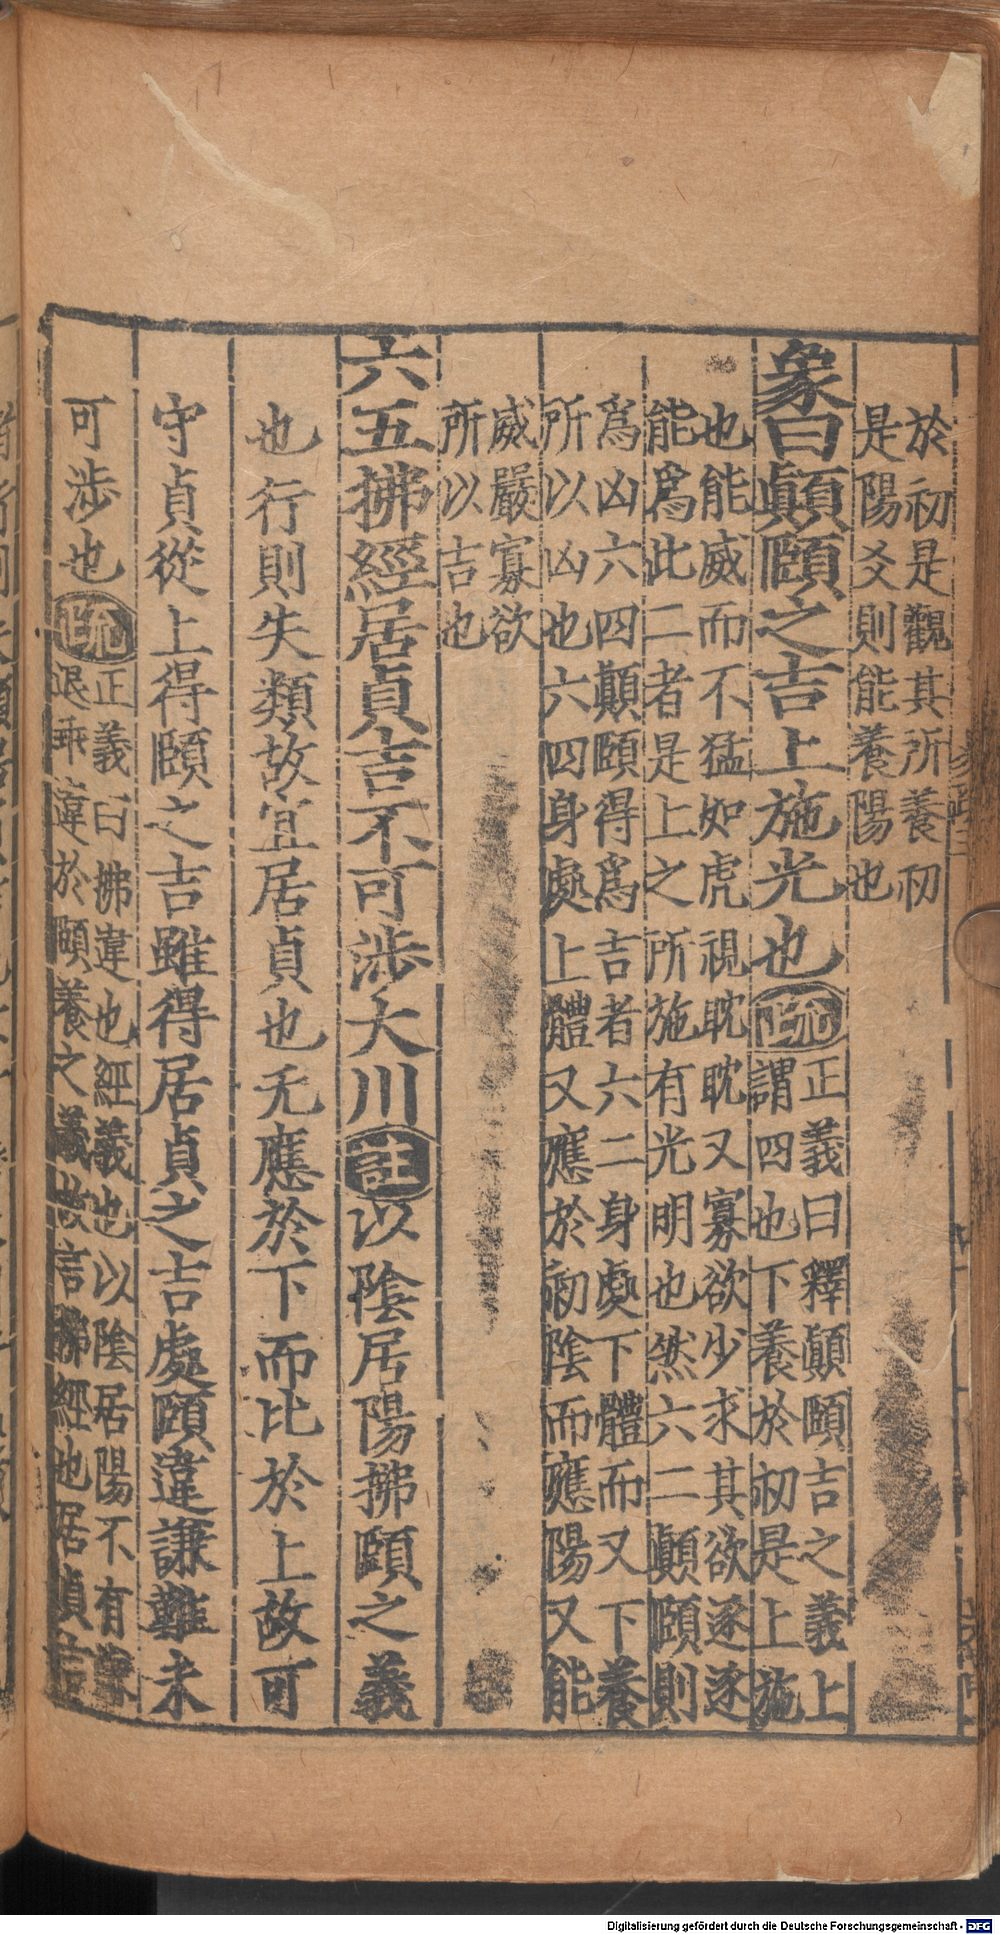 於初是觀其所養初
是陽爻則能養陽也
象曰顚頤之吉上施光也疏正義曰釋顚頤吉之義上
謂四也下養於初是上施
也能威而不猛如虎視眈眈又寡欲少求其欲逐逐
能爲此二者是上之所施有光明也然六二顚頤則
爲凶六四顚頤得爲吉者六二身處下體而又下養
所以凶也六四身處上體又應於初陰而應陽又能
威嚴寡欲
所以吉也
六五拂經居貞吉不可涉大川註以陰居陽拂頤之義
也行則失類故宜居貞也无應於下而比於上故可
守貞從上得頤之吉雖得居貞之吉處頤違謙難未
可涉也疏正義曰拂違也經義也以陰居陽不有謙
退乖違於頤養之義故言拂經也居貞吉
Digitalisierung gefördert durch die Deutsche Forschungsgemeinschaft - DFG